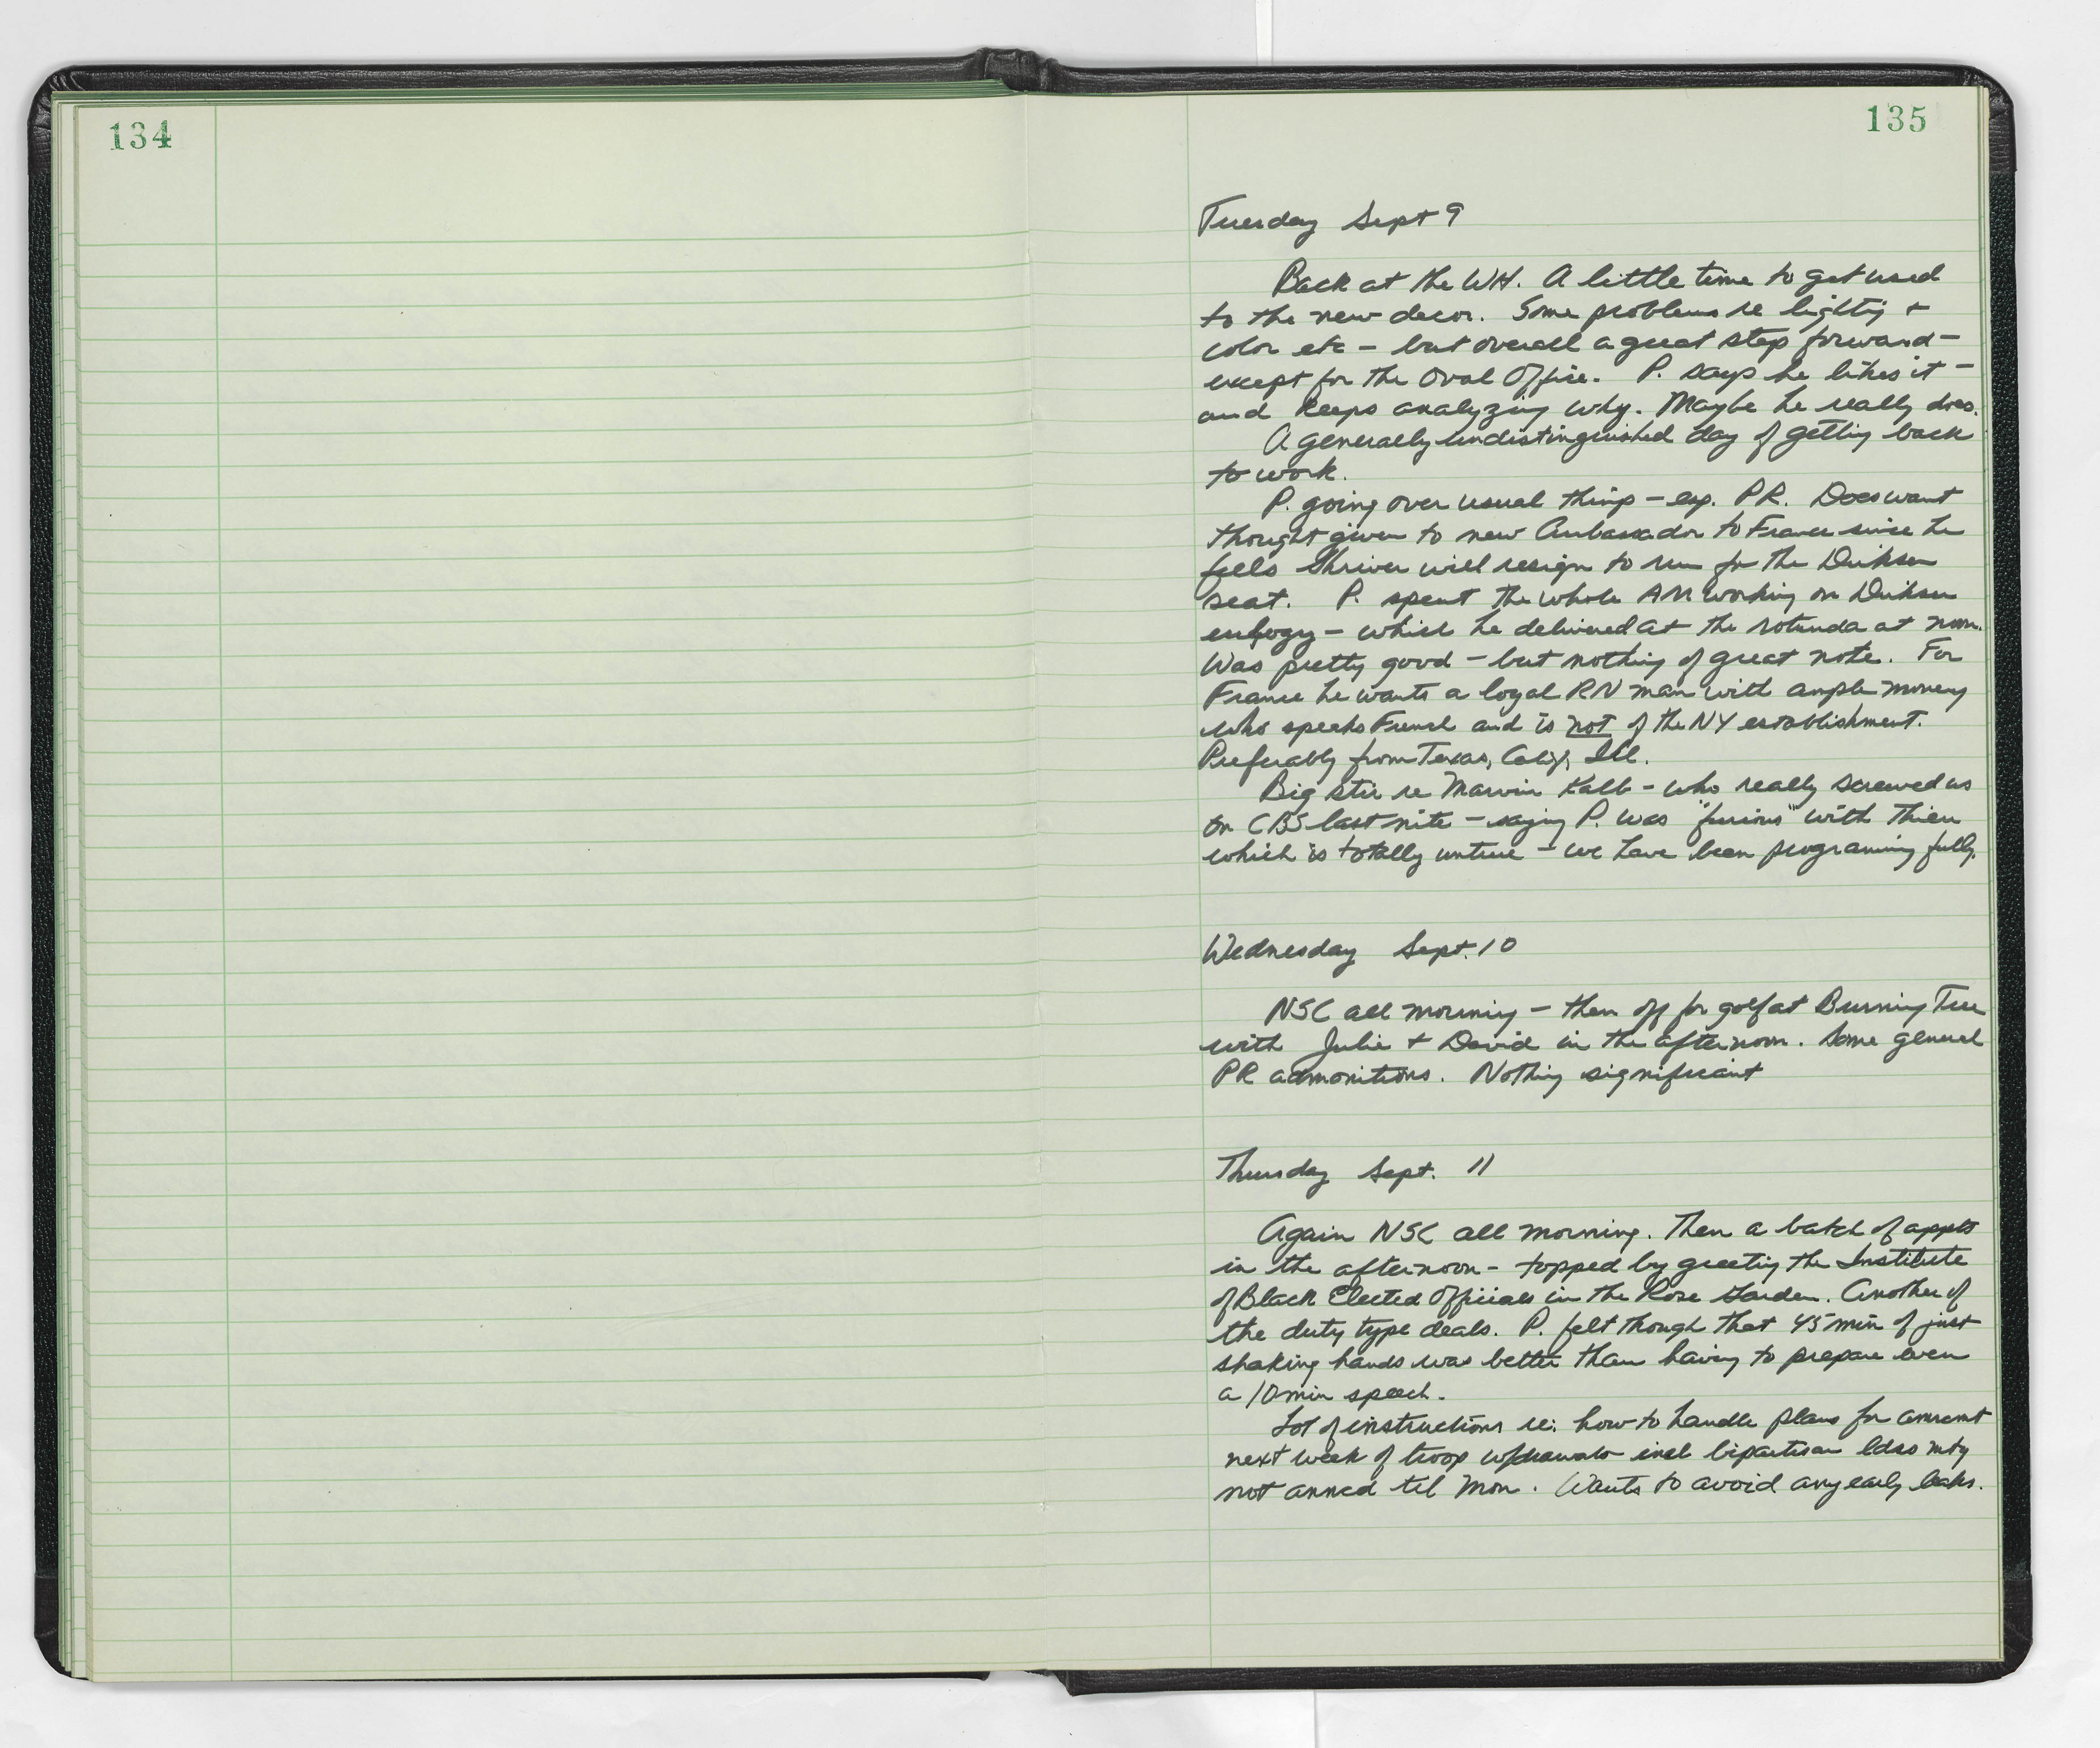 134
135
Tuesday Sept 9
Back at the WH. A little time to get used
to the new decor. Some problems re lighting +
color etc - but overall a great step forward -
except for the Oval Office. P. says he likes it -
and keeps analyzing why. Maybe he really does.
A generally undistinguished day of getting back
to work.
P. going over usual things - esp. PR. Does want
thought given to new Ambassador to France since he
feels Shriver will resign to run for the Dirksen
seat. P. spent the whole AM working on Dirksen
eulogy - which he delivered at the rotunda at noon.
Was pretty good - but nothing of great note. For
France he wants a loyal RN man with ample money
who speaks French and is not of the NY establishment.
Preferably from Texas, Calif, Ill.
Big stir re Marvin Kalb - who really screwed us
on CBS last nite - saying P. was "furious" with Thieu
which is totally untrue - we have been programing fully.
Wednesday Sept. 10
NSC all morning - then off for golf at Burning Tree
with Julie + David in the afternoon. Some general
PR admonitions. Nothing significant
Thursday Sept. 11
Again NSC all morning. Then a batch of appts
in the afternoon - topped by greeting the Institute
of Black Elected Officials in the Rose Garden. Another of
the duty type deals. P. felt though that 45 min of just
shaking hands was better than having to prepare even
a 10 min speech.
Lot of instructions re: how to handle plans for anncmt
next week of troop w/drawals incl bipartisan ldrs mtg
not annced til Mon. Wants to avoid any early leaks.